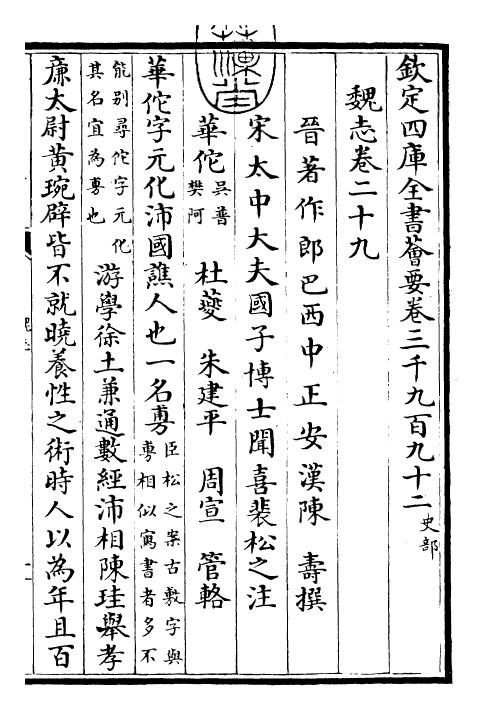 欽定四庫全書薈要卷三千九百九十二史部
魏志卷二十九
晉著作郎巴西中正安漢陳壽撰
宋太中大夫國子博士聞喜裴松之注
華佗吳普樊阿 杜夔 朱建平 周宣 管輅
華佗字元化沛國譙人也一名旉臣松之案古敷字與旉相似寫書者多不
能別尋佗字元化其名宜為旉也游學徐土兼通數經沛相陳珪舉孝
廉太尉黃琬辟皆不就曉養性之術時人以為年且百